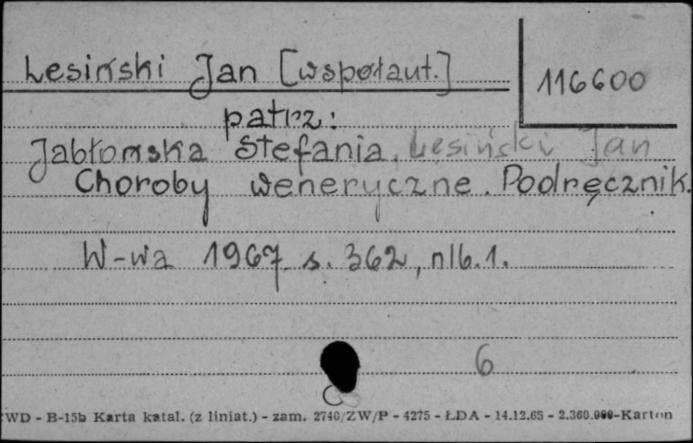 Lesiński Jan [współaut.]
116600
patrz:
Jabłomska Stefania, Lesiński Jan
Choroby weneryczne. Podręcznik.
W-wa 1967 s. 362, nlb. 1.
6
WD - B-15b Karta katal. (z liniat.) - zam. 2740/ZW/P - 4275 - ŁDA - 14.12.65 - 2.360.000-Karton